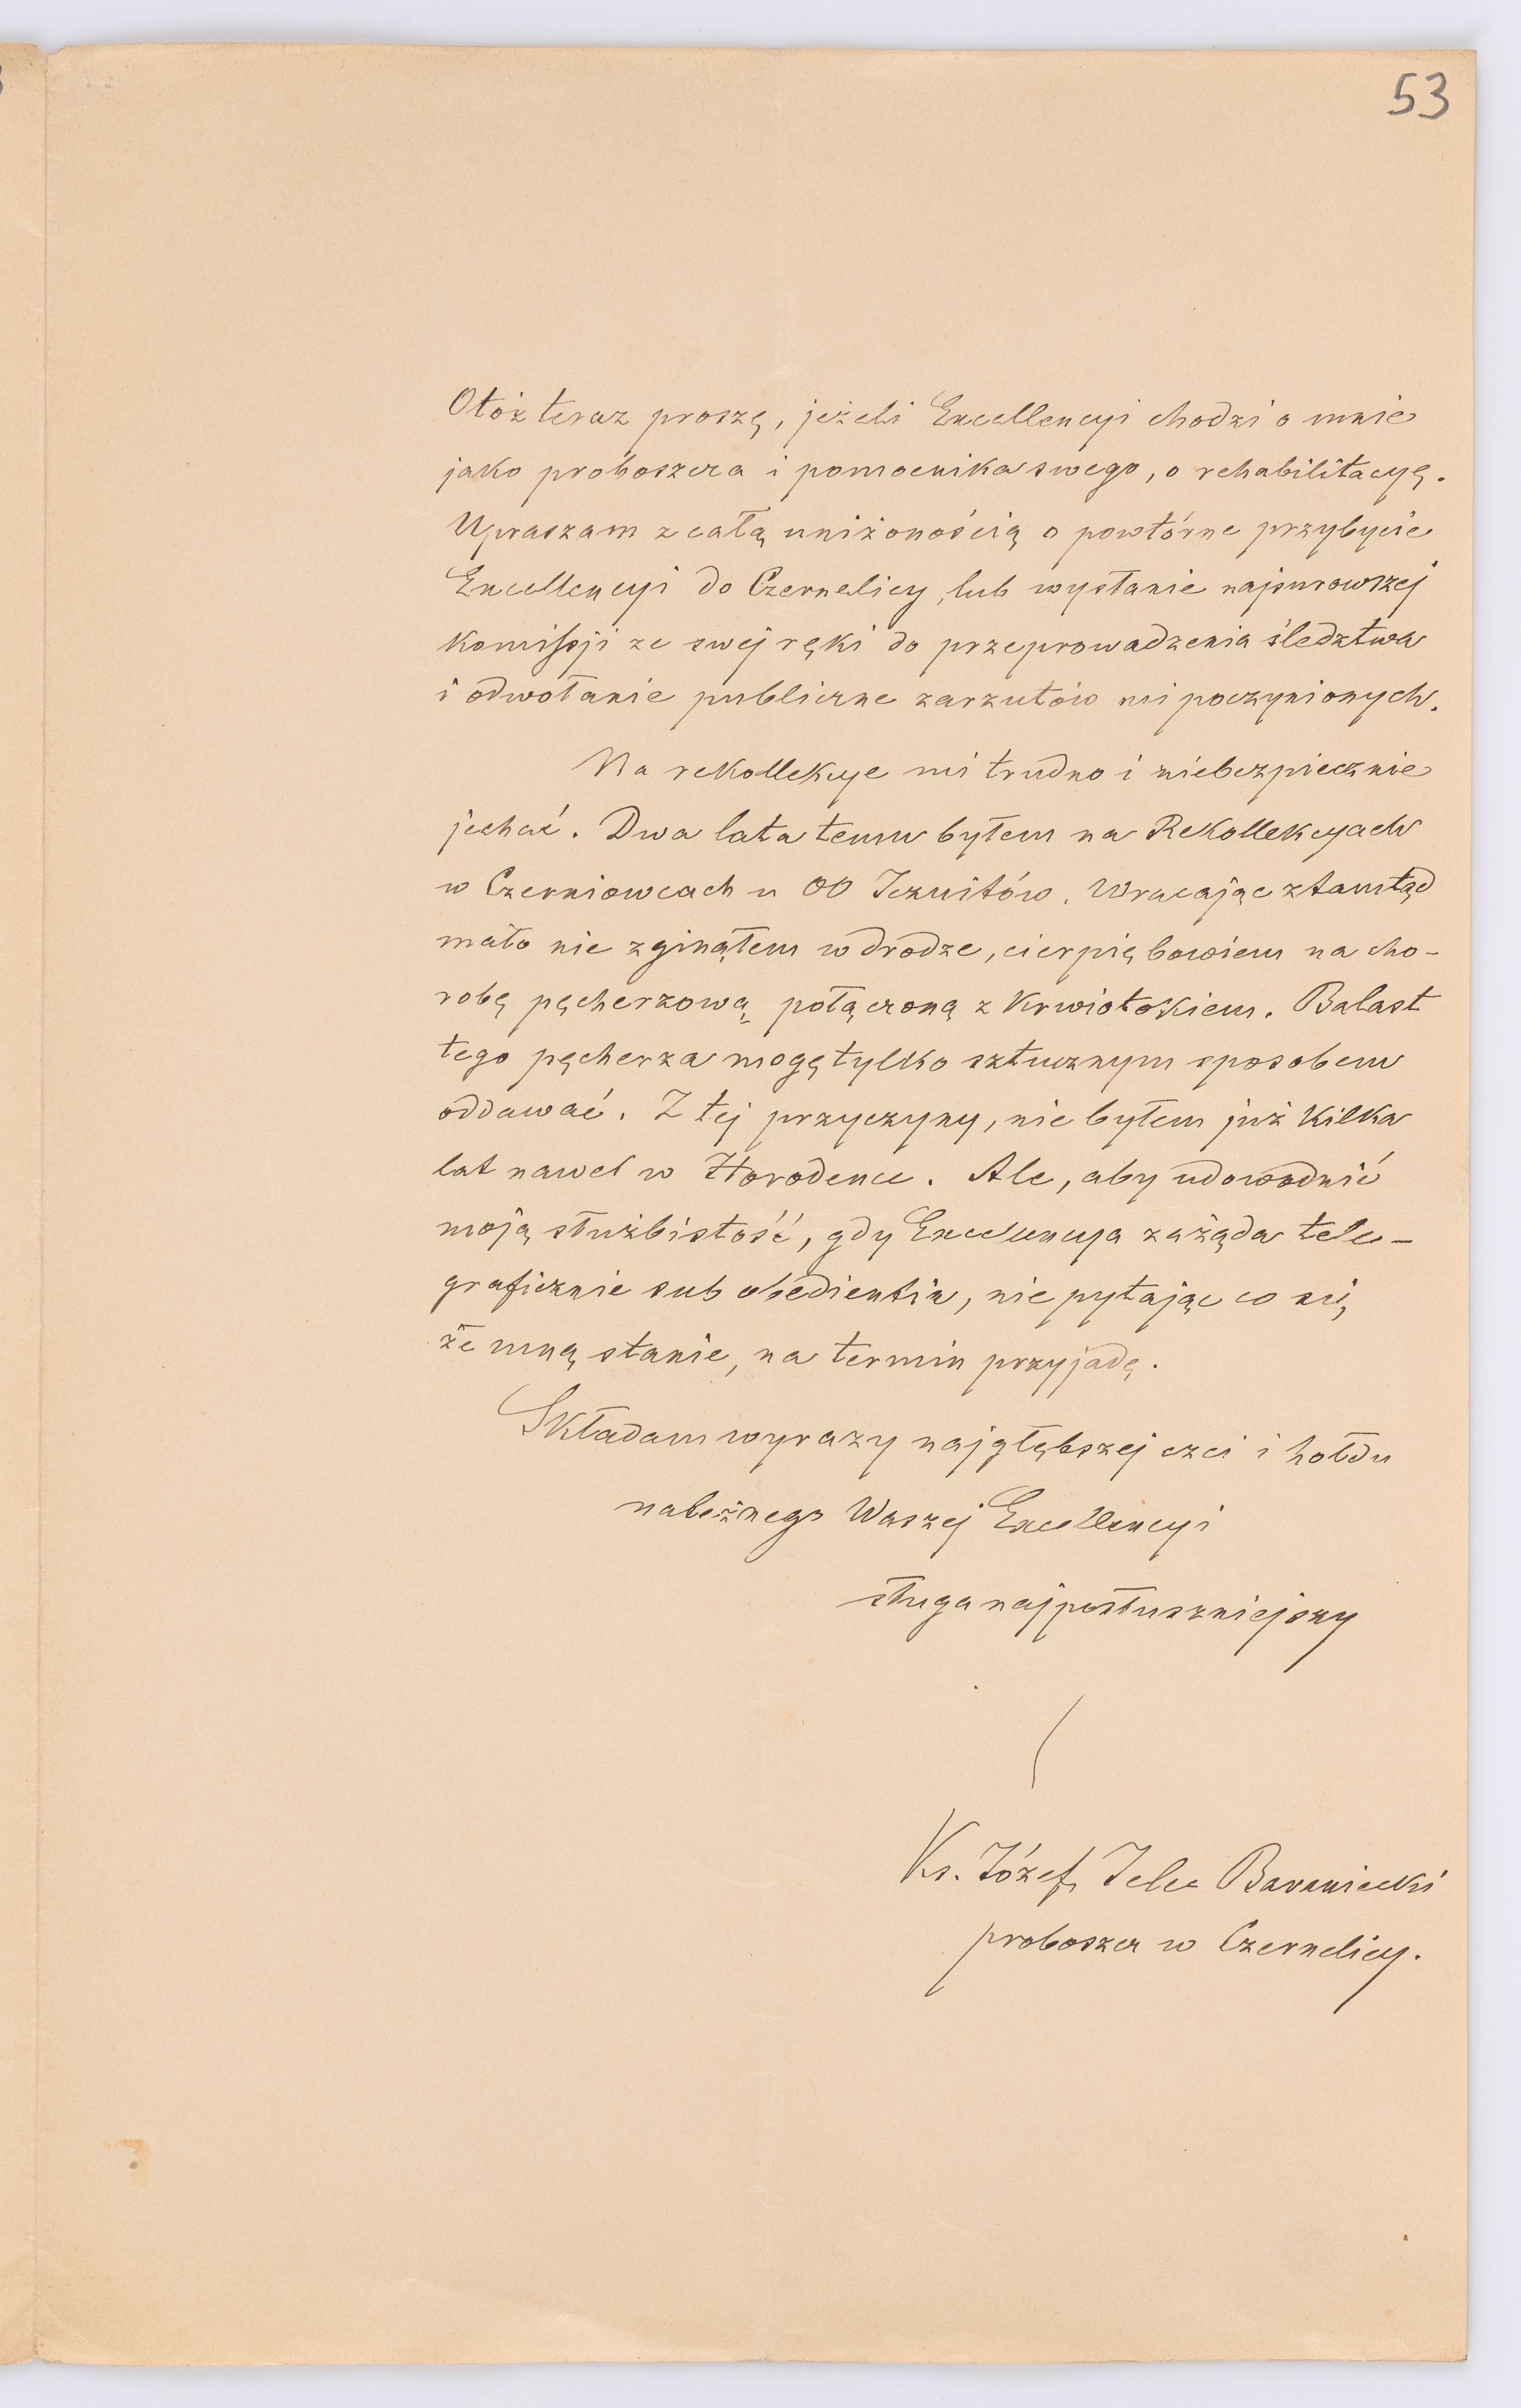 53
Otóż teraz proszę, jeżeli Excellencyi chodzi o mnie
jako proboszcza i pomocnika swego, o rehabilitacyę.
Upraszam z całą uniżonością o powtórne przybycie
Excellencyi do Czernelicy, lub wysłanie najsurowszej
komissji ze swej ręki do przeprowadzenia śledztwa
i odwołanie publiczne zarzutów mi poczynionych.
Na rekollekcye mi trudno i niebezpiecznie
jechać. Dwa lata temu byłem na Rekollekcyach
w Czerniowcach u OO Jezuitów. Wracając ztamtąd
mało nie zginąłem w drodze, cierpię bowiem na cho-
robę pęcherzową połączoną z krwiotokiem. Balast
tego pęcherza mogę tylko sztucznym sposobem
oddawać. Z tej przyczyny, nie byłem już kilka
lat nawet w Horodence. Ale, aby udowodnić
moją służbistość, gdy Excellencya zażąda tele-
graficznie sub obedientia, nie pytając co się
że mną stanie, na termin przyjadę.
Składam wyrazy najgłębszej czci i hołdu
należnego Waszej Excellencyi
sługa najposłuszniejszy
Ks. Józef Jelec Baraniecki
proboszcz w Czernelicy.